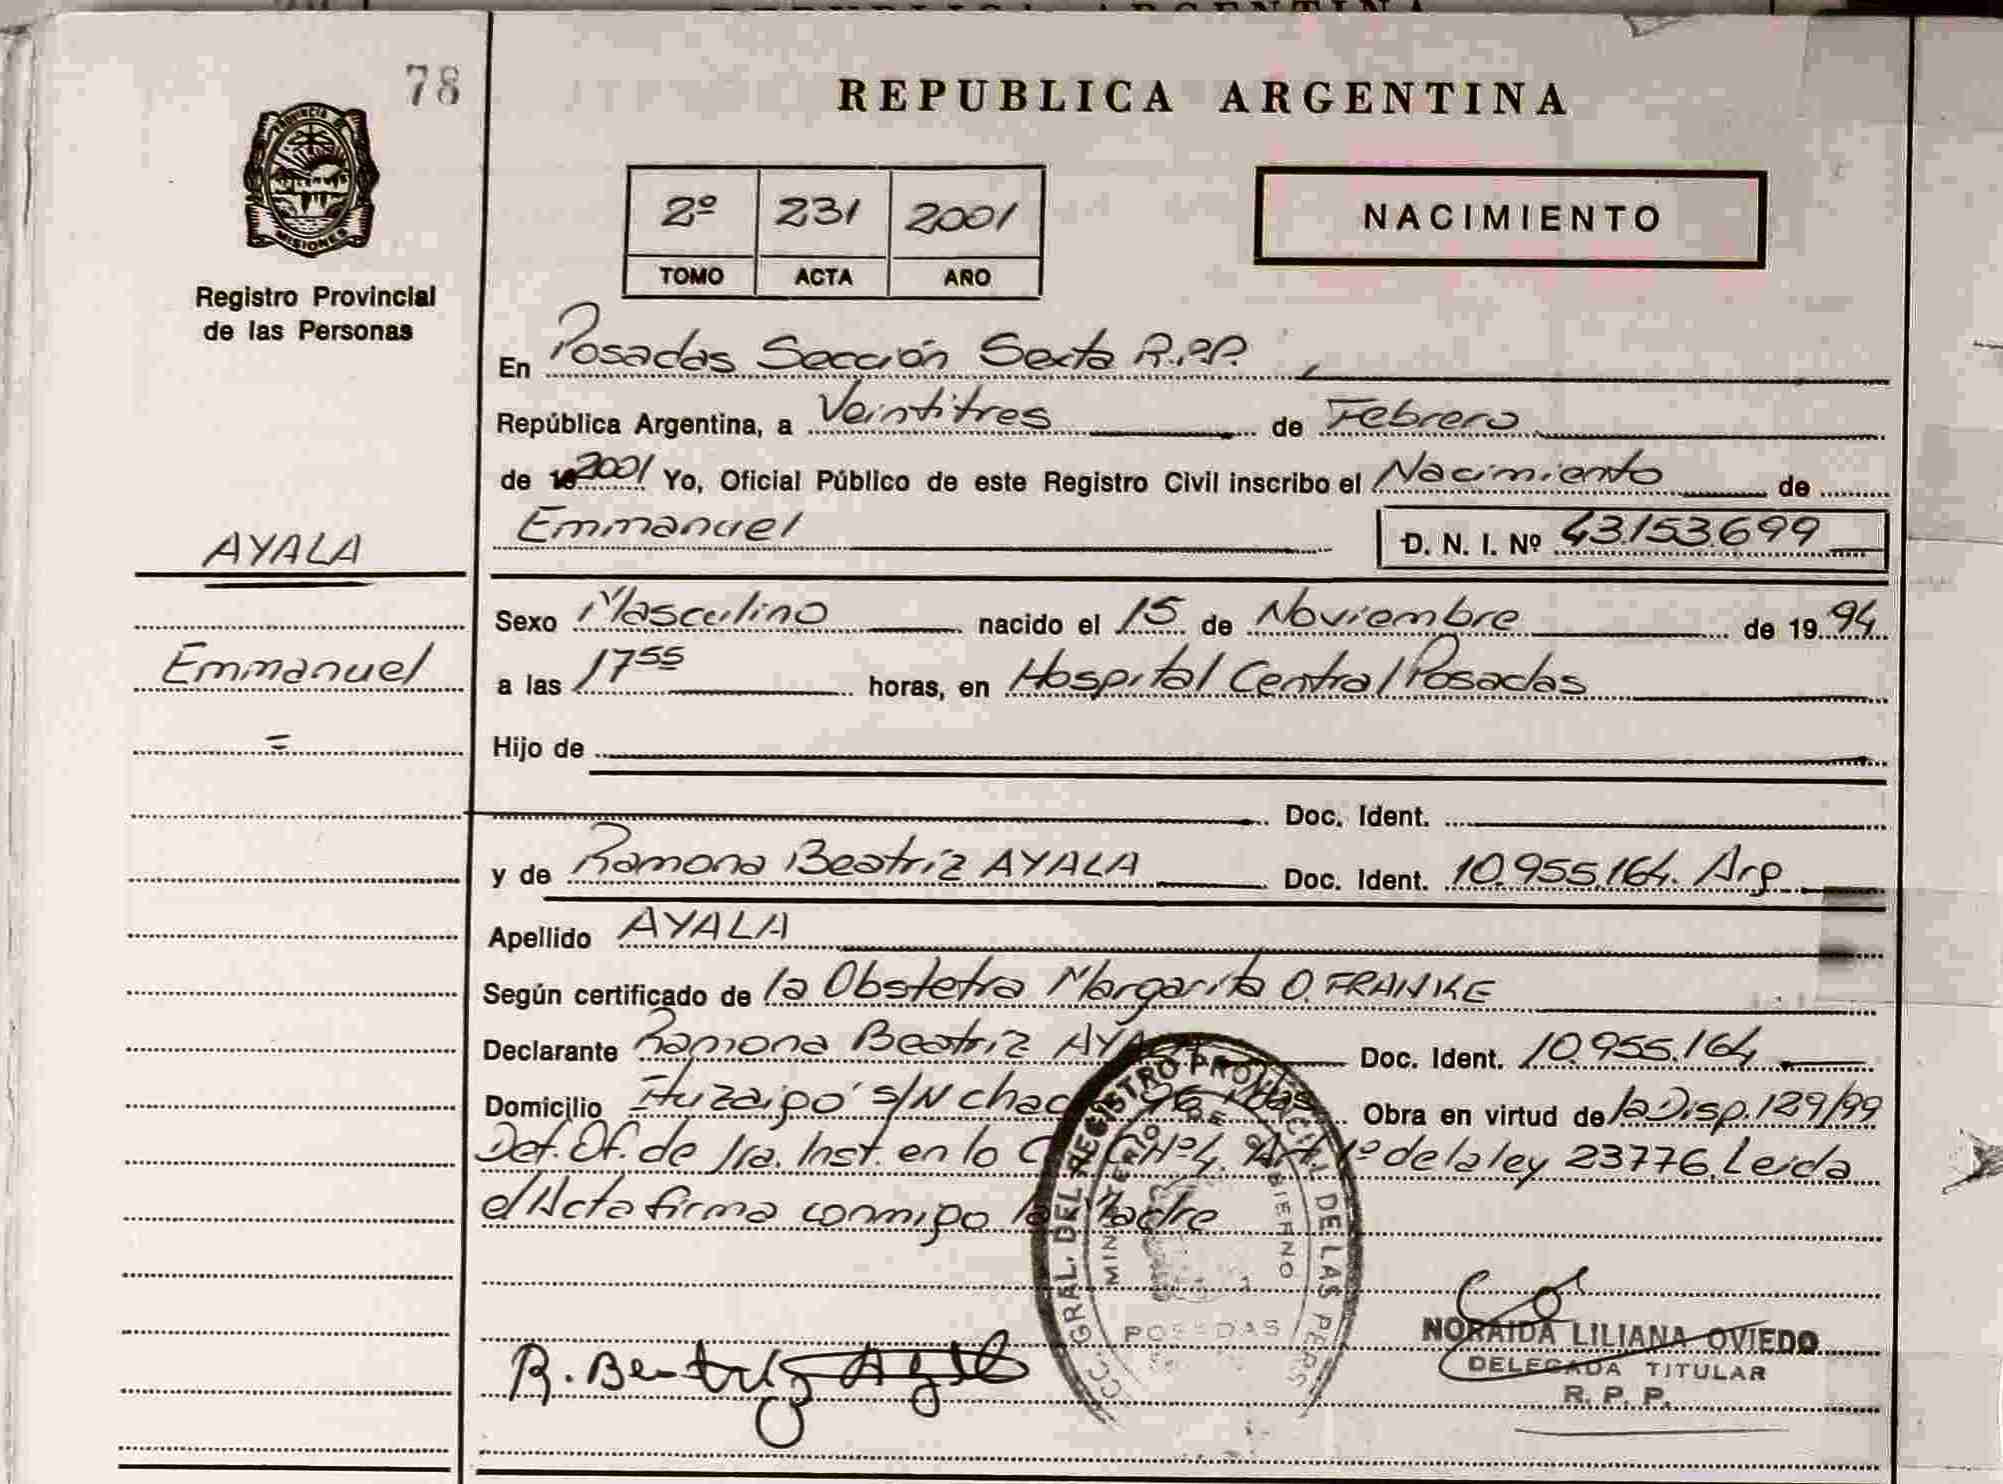 78
REPUBLICA ARGENTINA
PROVINCIA
MISIONES
Registro Provincial
de las Personas
2º 231 2001
TOMO ACTA AÑO
NACIMIENTO
En Posadas Sección Sexta R.P.P.
República Argentina, a Veintitres de Febrero
de 19 2001 Yo, Oficial Público de este Registro Civil inscribo el Nacimiento de
AYALA
Emmanuel D. N. I. Nº 43.153.699
Sexo Masculino nacido el 15 de Noviembre de 1994
Emmanuel
a las 17 55 horas, en Hospital Central Posadas
Hijo de
Doc. Ident.
y de Ramona Beatriz AYALA Doc. Ident. 10.955.164. Arg
Apellido AYALA
Según certificado de la Obstetra Margarita O. FRANKE
Declarante Ramona Beatriz AYALA Doc. Ident. 10.955.164
Domicilio s/N 96 Obra en virtud de la Disp. 129/99
Def. Of. de 1ra. Inst. en lo Nº 4. Art 1º de la ley 23776. Leida
el Acta firma conmigo la Madre
GRAL. DEL REGISTRO PROVINCIAL DE LAS PERS
MINISTERIO DE GOBIERNO
POSADAS
R. Beatriz Ayala
NORAIDA LILIANA OVIEDO
DELEGADA TITULAR
R. P. P.